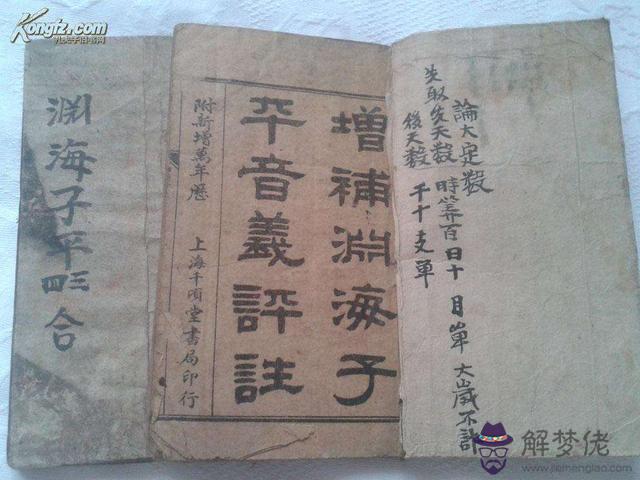 Kongfz.com
孔夫子旧书网
論大定数
時算百日十月單大歲不計
先取先天数
後天数
干十支單
增補淵海子
平音義評註
附新增萬年歷
上海千頃堂書局印行
渊海子平三四合
解梦佬
www.jiemenglao.com